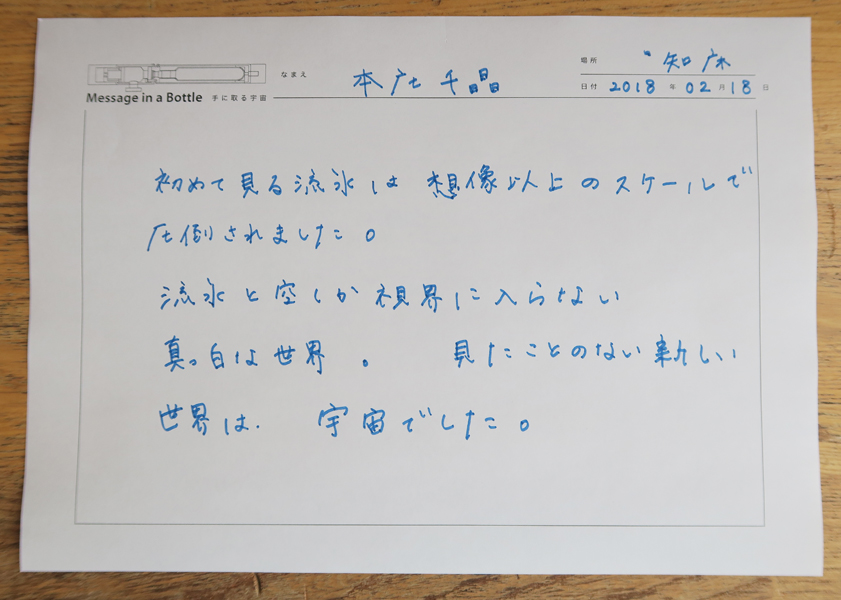 なまえ 本庄千晶
場所 知床
Message in a Bottle 手に取る宇宙
日付 2018 年 02 月 18 日
初めて見る流氷は想像以上のスケールで
圧倒されました。
流氷と空しか視界に入らない
真っ白な世界。 見たことのない新しい
世界は. 宇宙でした。